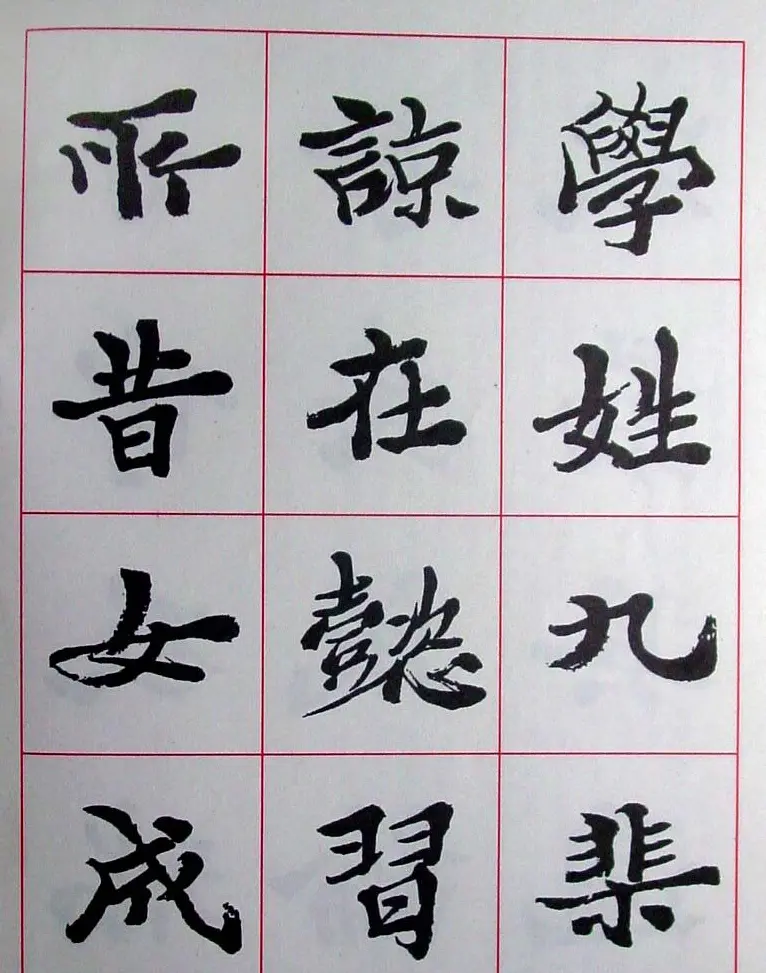 學姓九棐
諒在懿習
所昔女成